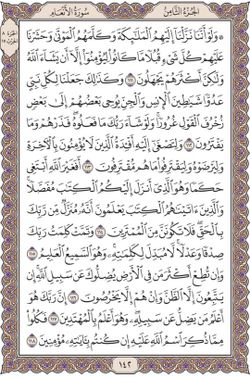 الجزء الثامن
سورة الأنعام
۞ وَلَوْ أَنَّنَا نَزَّلْنَا إِلَيْهِمُ الْمَلَٰئِكَةَ وَكَلَّمَهُمُ الْمَوْتَىٰ وَحَشَرْنَا
عَلَيْهِمْ كُلَّ شَيْءٍ قُبُلًا مَّا كَانُوا لِيُؤْمِنُوا إِلَّا أَن يَشَاءَ اللَّهُ
وَلَٰكِنَّ أَكْثَرَهُمْ يَجْهَلُونَ ١١١ وَكَذَٰلِكَ جَعَلْنَا لِكُلِّ نَبِيٍّ
عَدُوًّا شَيَاطِينَ الْإِنسِ وَالْجِنِّ يُوحِي بَعْضُهُمْ إِلَىٰ بَعْضٍ
زُخْرُفَ الْقَوْلِ غُرُورًا وَلَوْ شَاءَ رَبُّكَ مَا فَعَلُوهُ فَذَرْهُمْ وَمَا
يَفْتَرُونَ ١١٢ وَلِتَصْغَىٰ إِلَيْهِ أَفْئِدَةُ الَّذِينَ لَا يُؤْمِنُونَ بِالْآخِرَةِ
وَلِيَرْضَوْهُ وَلِيَقْتَرِفُوا مَا هُم مُّقْتَرِفُونَ ١١٣ أَفَغَيْرَ اللَّهِ أَبْتَغِي
حَكَمًا وَهُوَ الَّذِي أَنزَلَ إِلَيْكُمُ الْكِتَٰبَ مُفَصَّلًا
وَالَّذِينَ آتَيْنَٰهُمُ الْكِتَٰبَ يَعْلَمُونَ أَنَّهُ مُنَزَّلٌ مِّن رَّبِّكَ
بِالْحَقِّ فَلَا تَكُونَنَّ مِنَ الْمُمْتَرِينَ ١١٤ وَتَمَّتْ كَلِمَتُ رَبِّكَ
صِدْقًا وَعَدْلًا لَّا مُبَدِّلَ لِكَلِمَٰتِهِ وَهُوَ السَّمِيعُ الْعَلِيمُ ١١٥
وَإِن تُطِعْ أَكْثَرَ مَن فِي الْأَرْضِ يُضِلُّوكَ عَن سَبِيلِ اللَّهِ إِن
يَتَّبِعُونَ إِلَّا الظَّنَّ وَإِنْ هُمْ إِلَّا يَخْرُصُونَ ١١٦ إِنَّ رَبَّكَ هُوَ
أَعْلَمُ مَن يَضِلُّ عَن سَبِيلِهِ وَهُوَ أَعْلَمُ بِالْمُهْتَدِينَ ١١٧ فَكُلُوا
مِمَّا ذُكِرَ اسْمُ اللَّهِ عَلَيْهِ إِن كُنتُم بِآيَٰتِهِ مُؤْمِنِينَ ١١٨
١٤٢